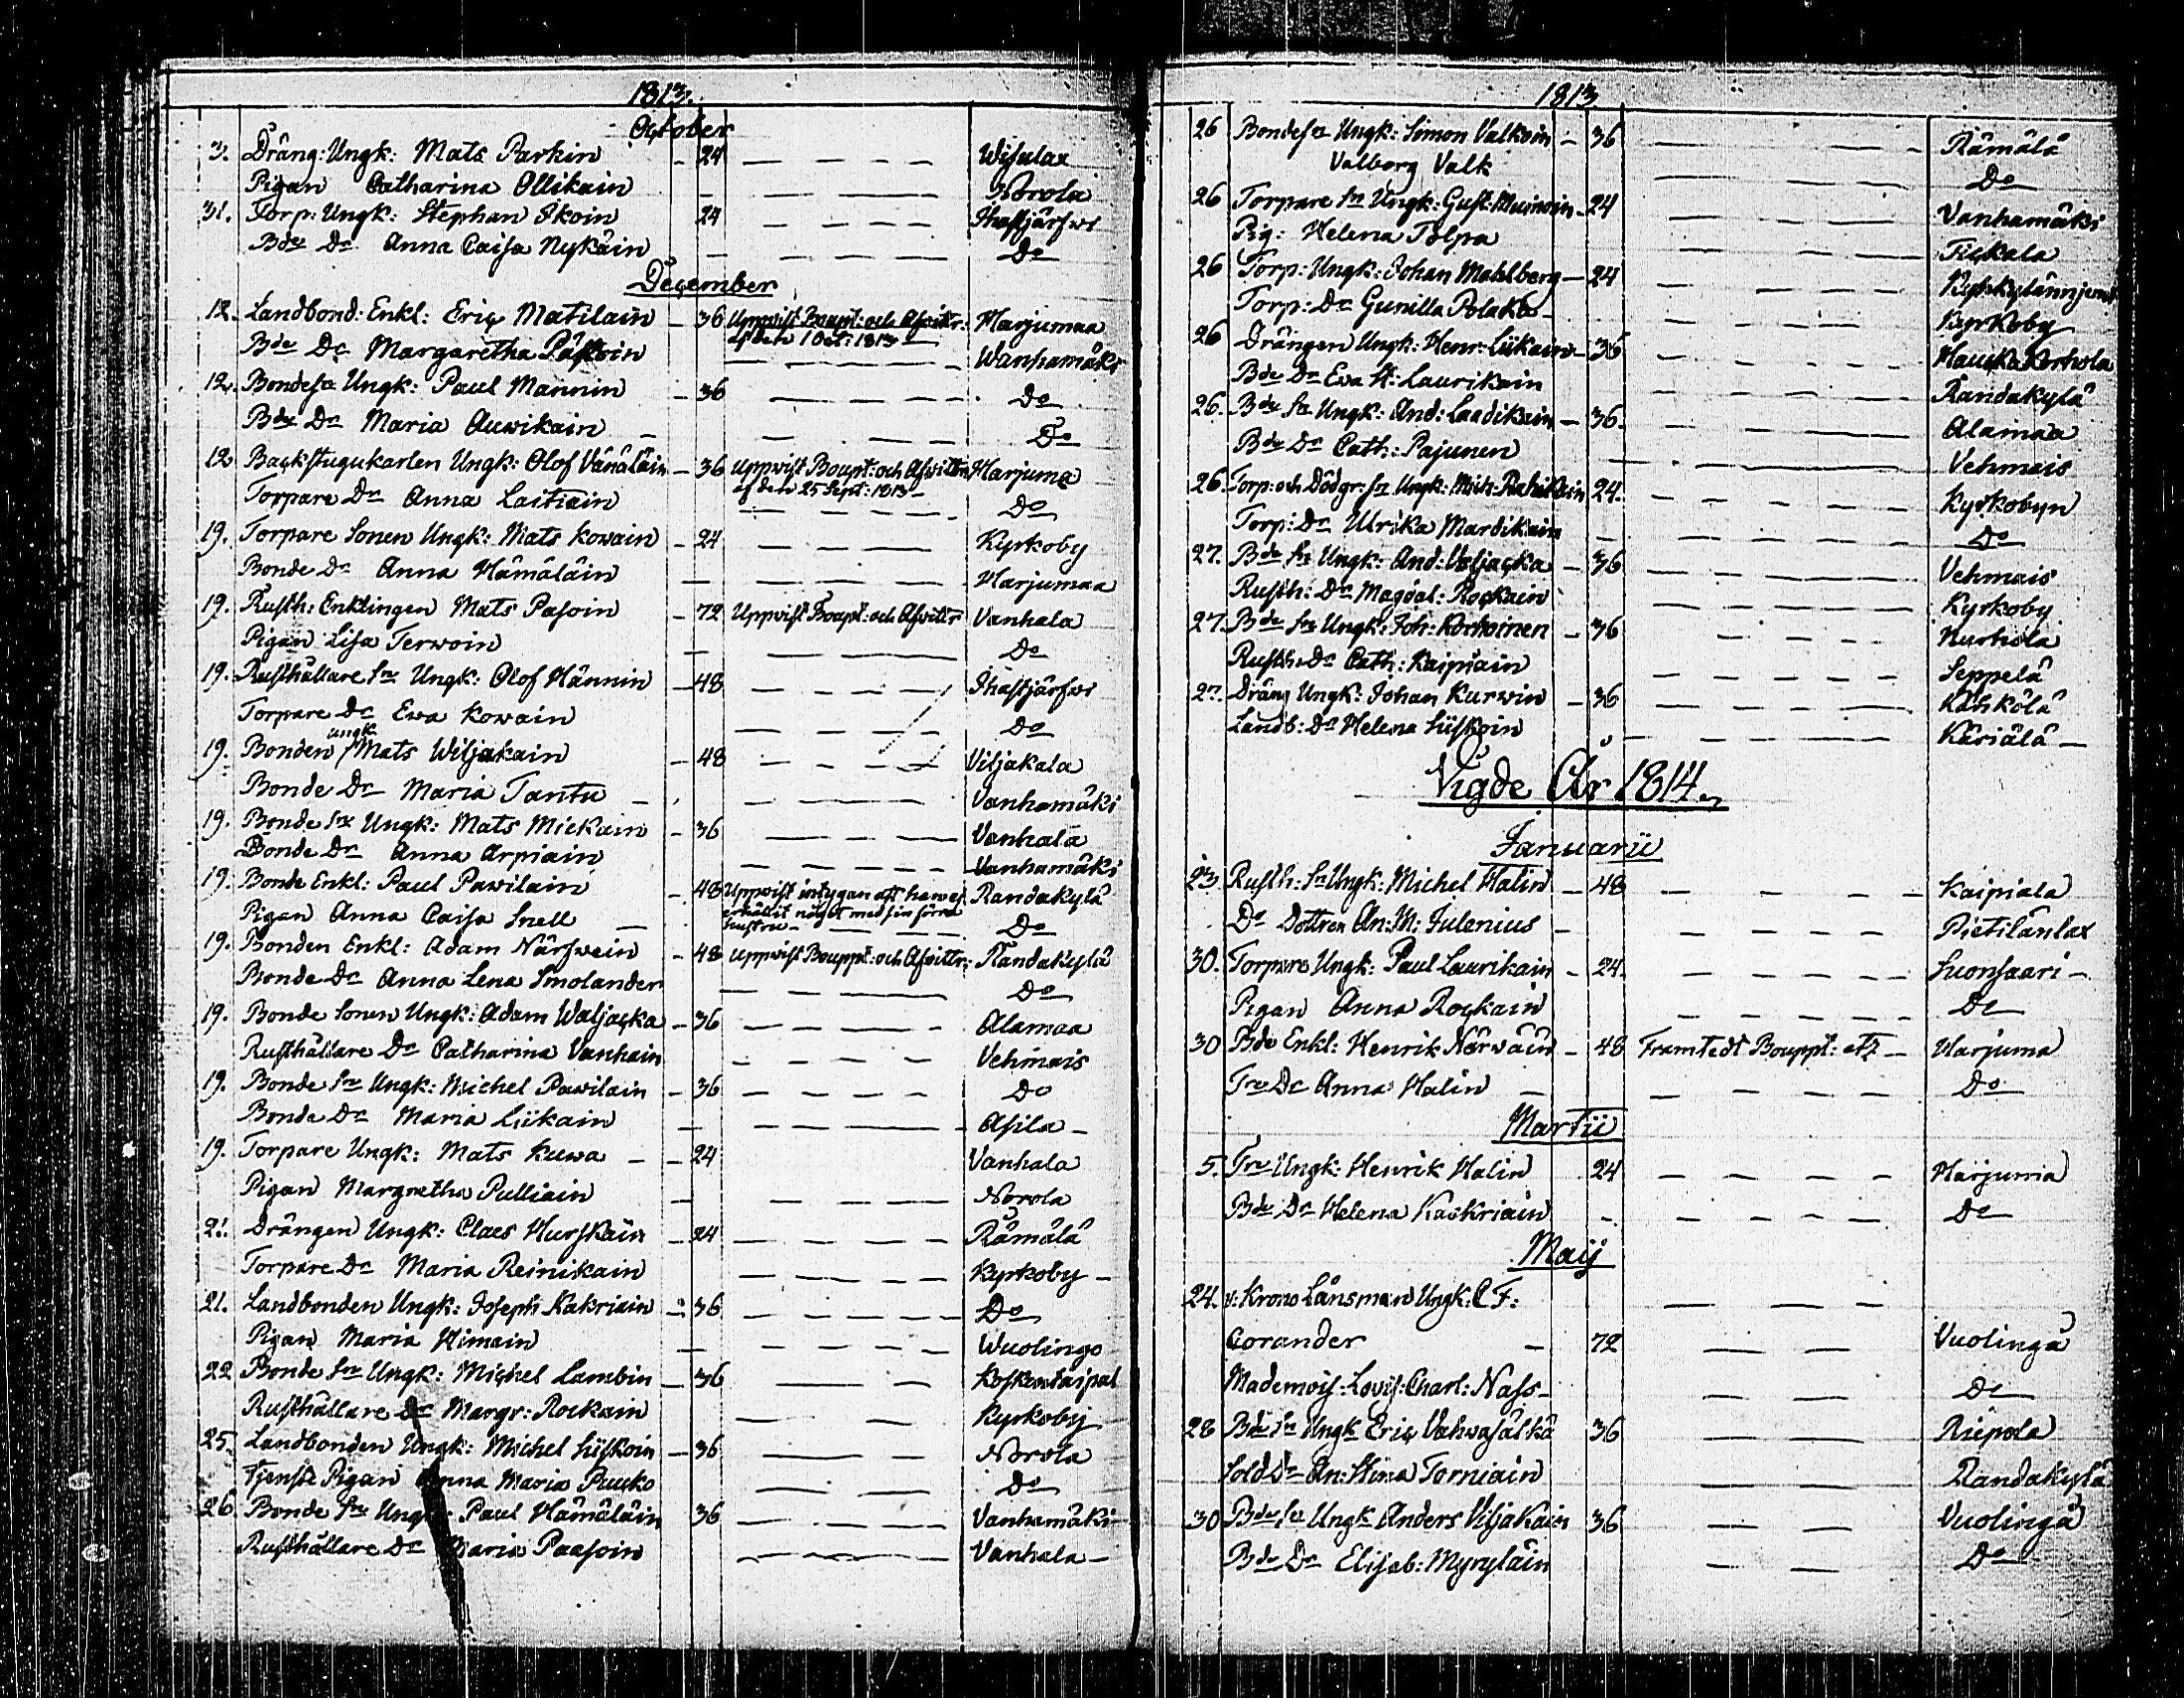 1813.
October
3. Dräng: Ungk: Mats Parkin - 24 Wisulax
Pigan Catharina Ollikain Norola
31. Torp: Ungk: Stephan Ikoin 24 Ihastjärfwi
Bde Dr Anna Caisa Nykäin Do
December
12. Landbond: Enkl: Eric Matilain - 36 Uppvist Boupt: och Afwittr: Marjumaa
af den 1 Oct: 1813
Bde Dr Margaretha Wanhamäki
12. Bondesn Ungk: Paul Mannin - 36 Do
Bde Dr Maria Auvikain Do
12 Backstugukarlen Ungk: Olof Vänäläin - 36 Uppvist Boupt: och Afwittr: Harjuma
af den 25 Sept: 1813
Torpare Dr Anna Laitiain Do
19. Torpare Sonen Ungk: Mats Kowain - 24 Kyrkoby
Bonde Dr Anna Hämäläin Harjumaa
19. Rusth: Enklingen Mats Pasoin - 72 Uppvist Boupt: och Afwittr Vanhala
Pigan Lisa Terwoin Do
19. Rusthållare Sn Ungk: Olof Hännin - 48 Ihastjärfwi
Torpare Dr Ewa Kowain Do
19. Bonden ungk Mats Wiljakain - 48 Viljakala
Bonde Dr Maria Tantu Vanhamäki
19. Bonde Sn Ungk: Mats Mickain - 36 Vanhala
Bonde Dr Anna Arpiain Vanhamäki
19. Bonde Enkl: Paul Pawilain - 48 Uppvist intygan att ha wej Randakylä
erhållit något med sin förra
hustru
Pigan Anna Caisa Snell Do
19. Bonden Enkl: Adam Närfwein - 48 Uppvist Bouppt: och Afwittr: Randakylä
Bonde Dr Anna Lena Smolander Do
19. Bonde Sonen Ungk: Adam Waljacka - 36 Alamaa
Rusthållare Dr Catharina Vanhain Vehmais
19. Bonde Sn Ungk: Michel Pawilain - 36 Do
Bonde Dr Maria Liikain Asila
19. Torpare Ungk: Mats Kuwa - 24 Vanhala
Pigan Margretha Pulliain Norola
21. Drängen Ungk: Claes Hurskain - 24 Rämälä
Torpare Dr Maria Reinikain Kyrkoby
21. Landbonden Ungk: Joseph Kakriain - 36 Do
Pigan Maria Himain Wuolingo
22 Bonde Sn Ungk: Michel Lambin - 36 Koskentaipal
Rusthållare Dr Margr: Rockain Kyrkoby
25. Landbonden Ungk: Michel Liiskoin - 36 Norola
Tjenste Pigan Anna Maria Pucko Do
26. Bonde Sn Ungk: Paul Hämäläin 36 Vanhamäki
Rusthållare Dr Maria Paasoin Vanhala
1813
26 Bondesn Ungk: Simon Valkoin - 36 Rämälä
Valborg Valk Do
26 Torpare Sn Ungk: Gust: Muinoin - 24 Vanhamäki
Pig: Helena Tolpa Tickala
26 Torp: Ungk: Johan Mahlberg - 24
Torp: Dr Gunilla Polakka Kyrkoby
26 Drängen Ungk: Henr: Liikain - 36 Hauska Korhola
Bde Dr Ewa St: Laurikain Randakylä
26. Bde Sn Ungk: And: Laadikain - 36 Alamaa
Bde Dr Cath: Pajunen Vehmais
26 Torp: och Dödgr: Sn Ungk: Mich: 24. Kyrkobyn
Torp: Dr Ulrika Mardikain Do
27. Bde Sn Ungk: And: Valjacka - 36 Vehmais
Rusth: Dr Magdal: Rockain Kyrkoby
27. Bde Sn Ungk: Joh: Korhoinen - 36 Kurhola
Rusth: Dr Cath: Kaipiain Seppelä
27. Dräng Ungk: Johan Kurwin - 36
Landb: Dr Helena Liiskoin Käriälä
Vigde År 1814.
Januarii
23. Rusth: Sn Ungk: Michel Halin - 48 Kaipiala
Do Dottren An: M: Julenius Pietilänlax
30. Torpare Ungk: Paul Laurikain - 24. Suonsaari
Pigan Anna Rockain Do
30 Bde Enkl: Henrik Närväin - 48 Framtedt Bouppt: etz Harjuma
Tre Dr Anna Halin Do
Martii
5. Tre Ungk: Henrik Halin 24 Harjuma
Bde Dr Helena Kaskriain Do
Maij
24. v: Krono Länsman Ungk: C F:
Corander - 72 Vuolinga
Mademois: Lovis: Charl: Nass Do
28 Bde Sn Ungk Eric Vahwasälkä 36 Riepola
Sold Dr An: Stina Torniain Randakylä
30 Bde Sn Ungk Anders Viljakain 36 Vuolinga
Bde Dr Elisab: Myryläin Do